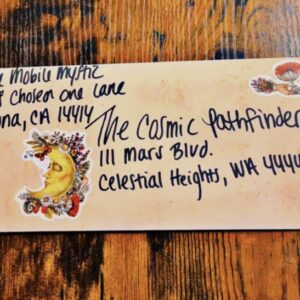 Mobile Mystic
Chosen One Lane
na, CA 14414
The Cosmic Pathfinder
111 Mars Blvd.
Celestial Heights, WA 4444